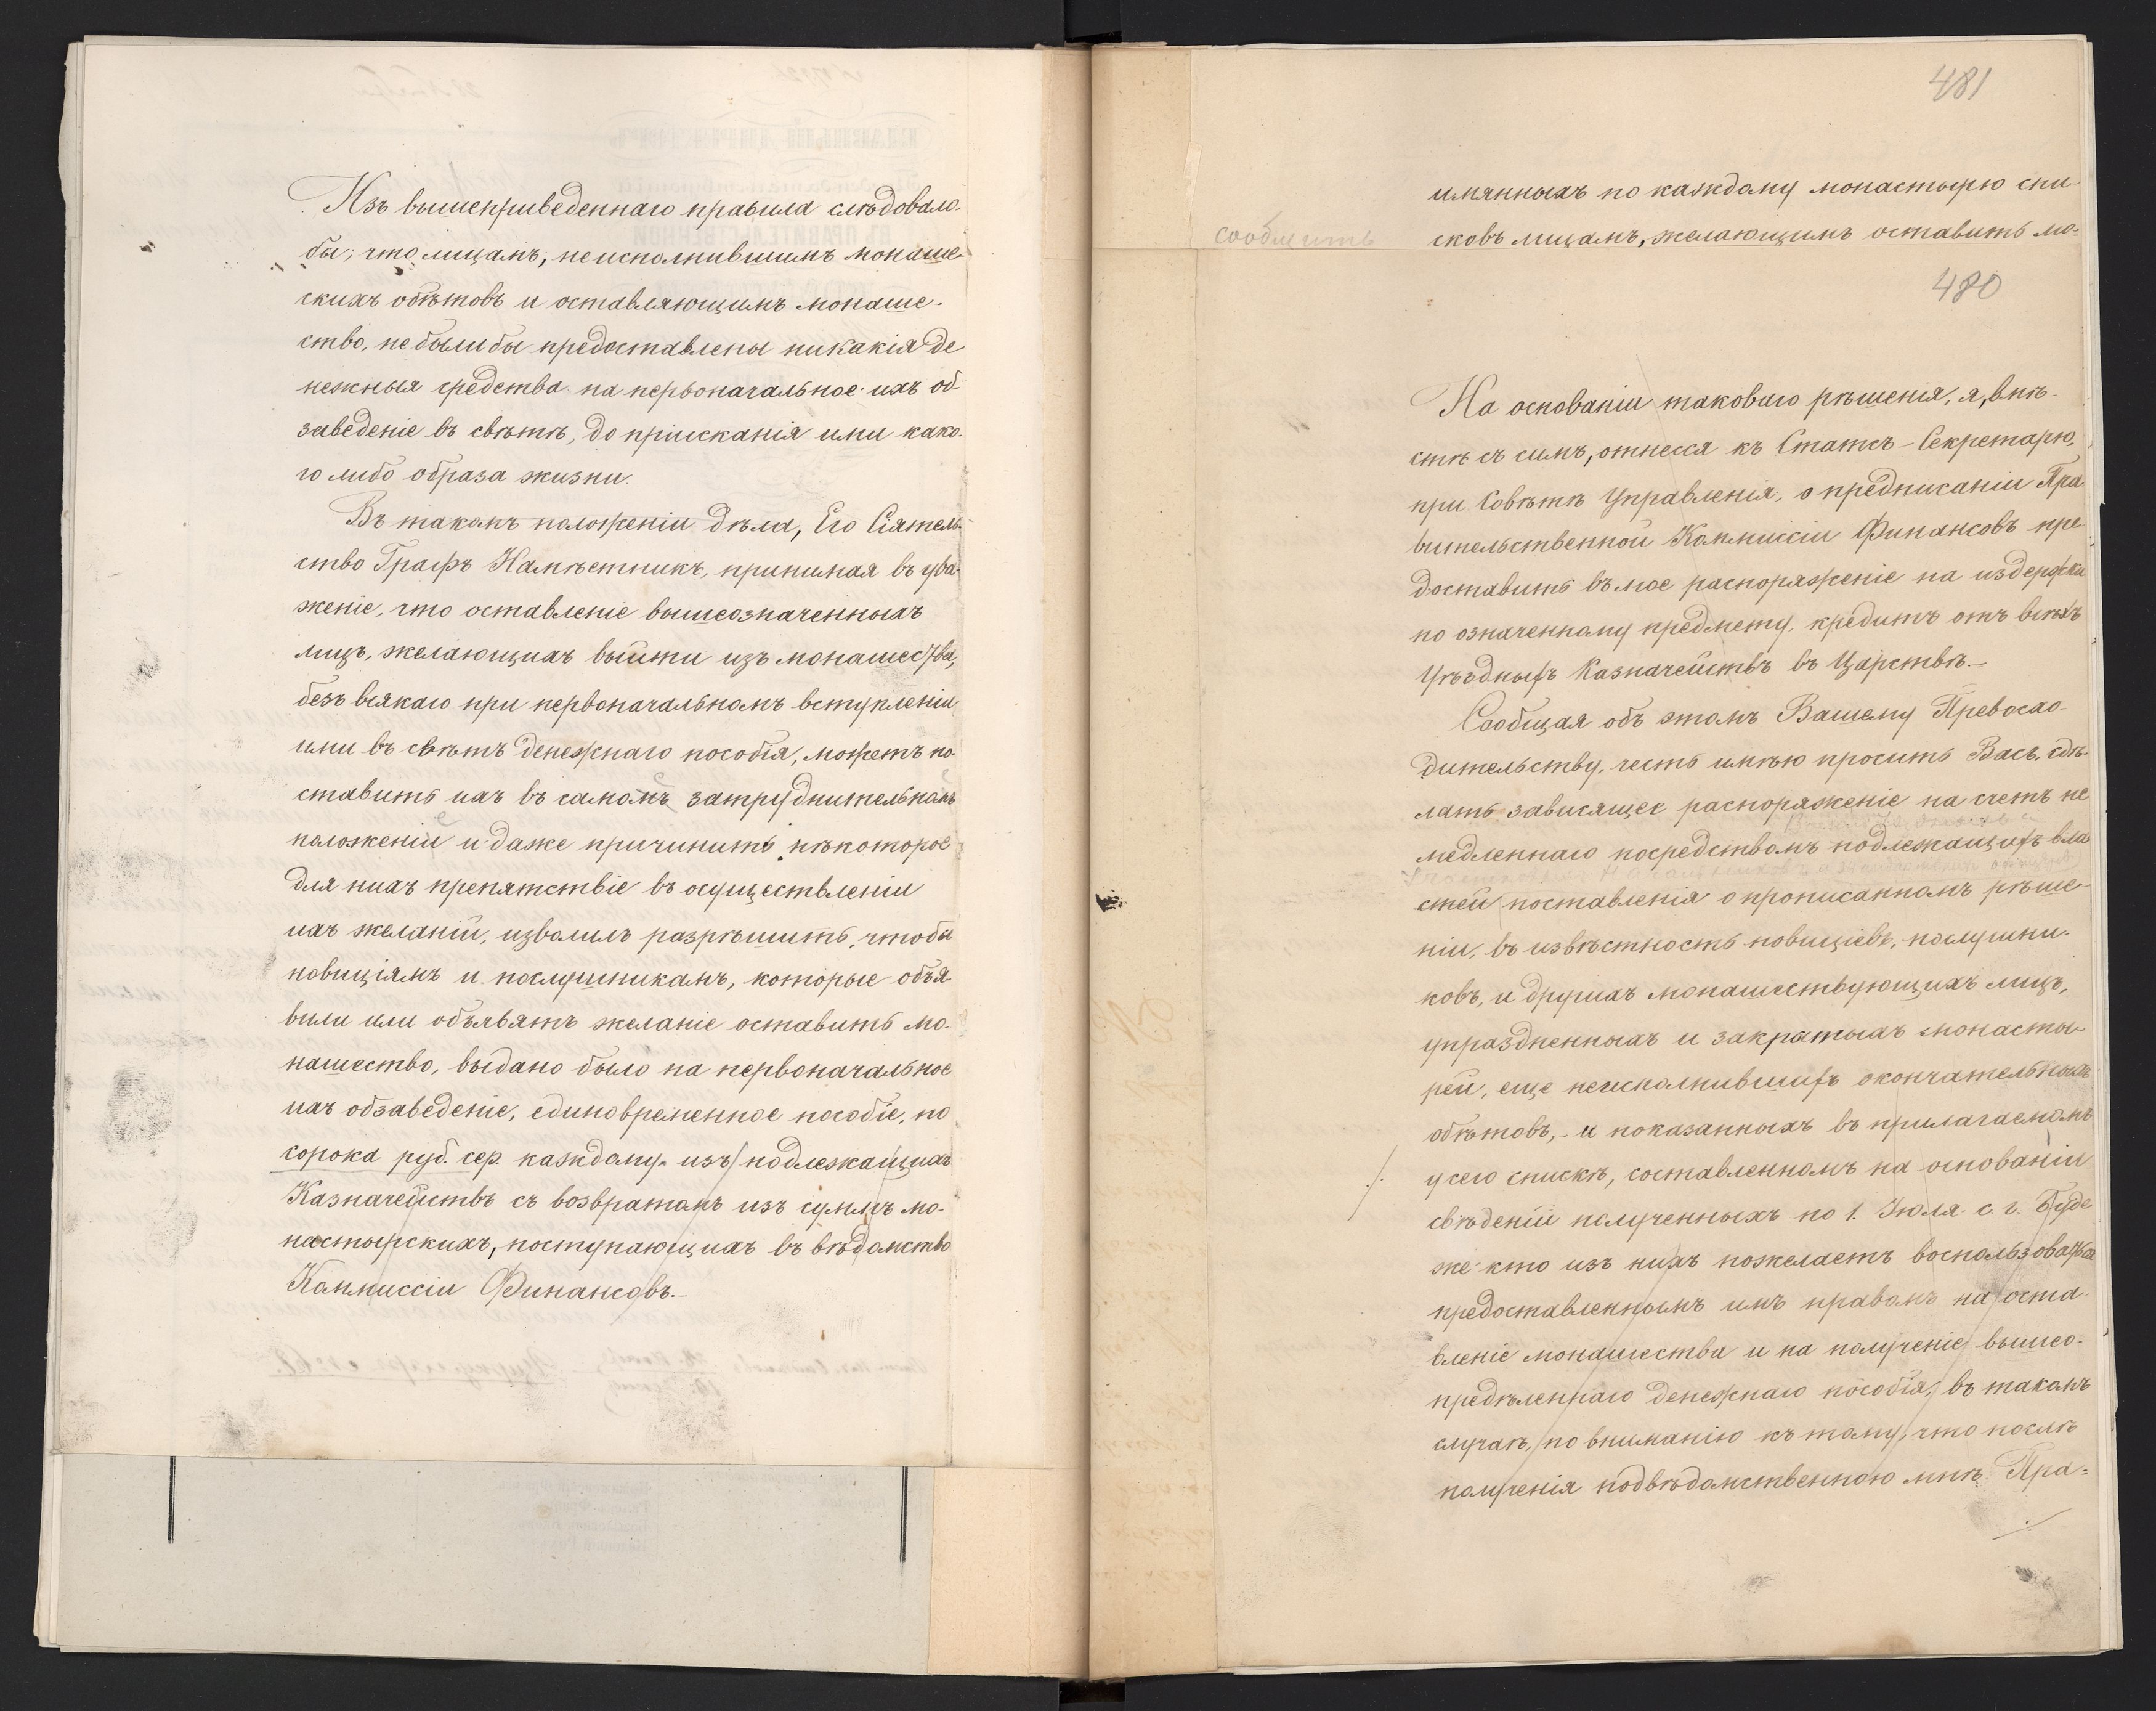 Изъ вышеприведеннаго правила слѣдовало-
бы, что лицамъ, не исполнившимъ монаше-
скихъ обѣтовъ и оставляющимъ монаше-
ство, не были бы предоставлены никакія де
нежныя средства на первоначальное ихъ об-
заведеніе въ свѣтѣ, до пріисканія ими како-
го либо образа жизни.
Въ такомъ положеніи дѣла, Его Сіятель-
ство Графъ Намѣстникъ, принимая въ ува-
женіе, что оставленіе вышеозначенныхъ
лицъ, желающихъ выйти изъ монашества,
безъ всякаго при первоначальномъ вступленіи
ими въ свѣтъ денежнаго пособія, можетъ по-
ставить ихъ въ самомъ затруднительномъ
положеніи и даже причинить нѣкоторое
для нихъ препятствіе въ осуществленіи
ихъ желаній, изволилъ разрѣшить, чтобы
новиціямъ и послушникамъ, которые объя-
вили или объявятъ желаніе оставить мо-
нашество, выдано было на первоначальное
ихъ обзаведеніе, единовременное пособіе, по
сорока руб. сер. каждому изъ подлежащихъ
Казначействъ съ возвратомъ изъ суммъ мо-
настырскихъ, поступающихъ въ вѣдомство
Коммиссіи Финансовъ.-
481
имянныхъ по каждому монастырю спи-
сообщить
сковъ лицамъ, желающимъ оставить мо-
480
На основаніи таковаго рѣшенія, я, вмѣ-
стѣ съ симъ, отнесся къ Статсъ-Секретарю,
при Совѣтѣ Управленія, о предписаніи Пра-
вительственной Коммиссіи Финансовъ пре-
доставить въ мое распоряженіе на издержки
по означенному предмету, кредитъ отъ всѣхъ
Уѣздныхъ Казначействъ въ Царствѣ.-
Сообщая объ этомъ Вашему Превосхо-
дительству, честь имѣю просить Васъ, сдѣ-
лать зависящее распоряженіе на счетъ не
медленнаго посредствомъ подлежащихъ вла
стей поставленія о прописанномъ рѣше-
ніи, въ извѣстность новиціевъ, послушни-
ковъ, и другихъ монашествующихъ лицъ,
упраздненныхъ и закрытыхъ монасты-
рей, еще неисполнившихъ окончательныхъ
обѣтовъ, и показанныхъ въ прилагаемомъ
у сего спискѣ, составленномъ на основаніи
свѣденій полученныхъ по 1. Іюля с. г. Буде
же кто изъ нихъ пожелаетъ воспользоваться
предоставленнымъ имъ правомъ на оста-
вленіе монашества и на полученіе вышео-
предѣленнаго денежнаго пособія, въ такомъ
случаѣ, по вниманію къ тому, что послѣ
полученія подвѣдомственною мнѣ Пра=